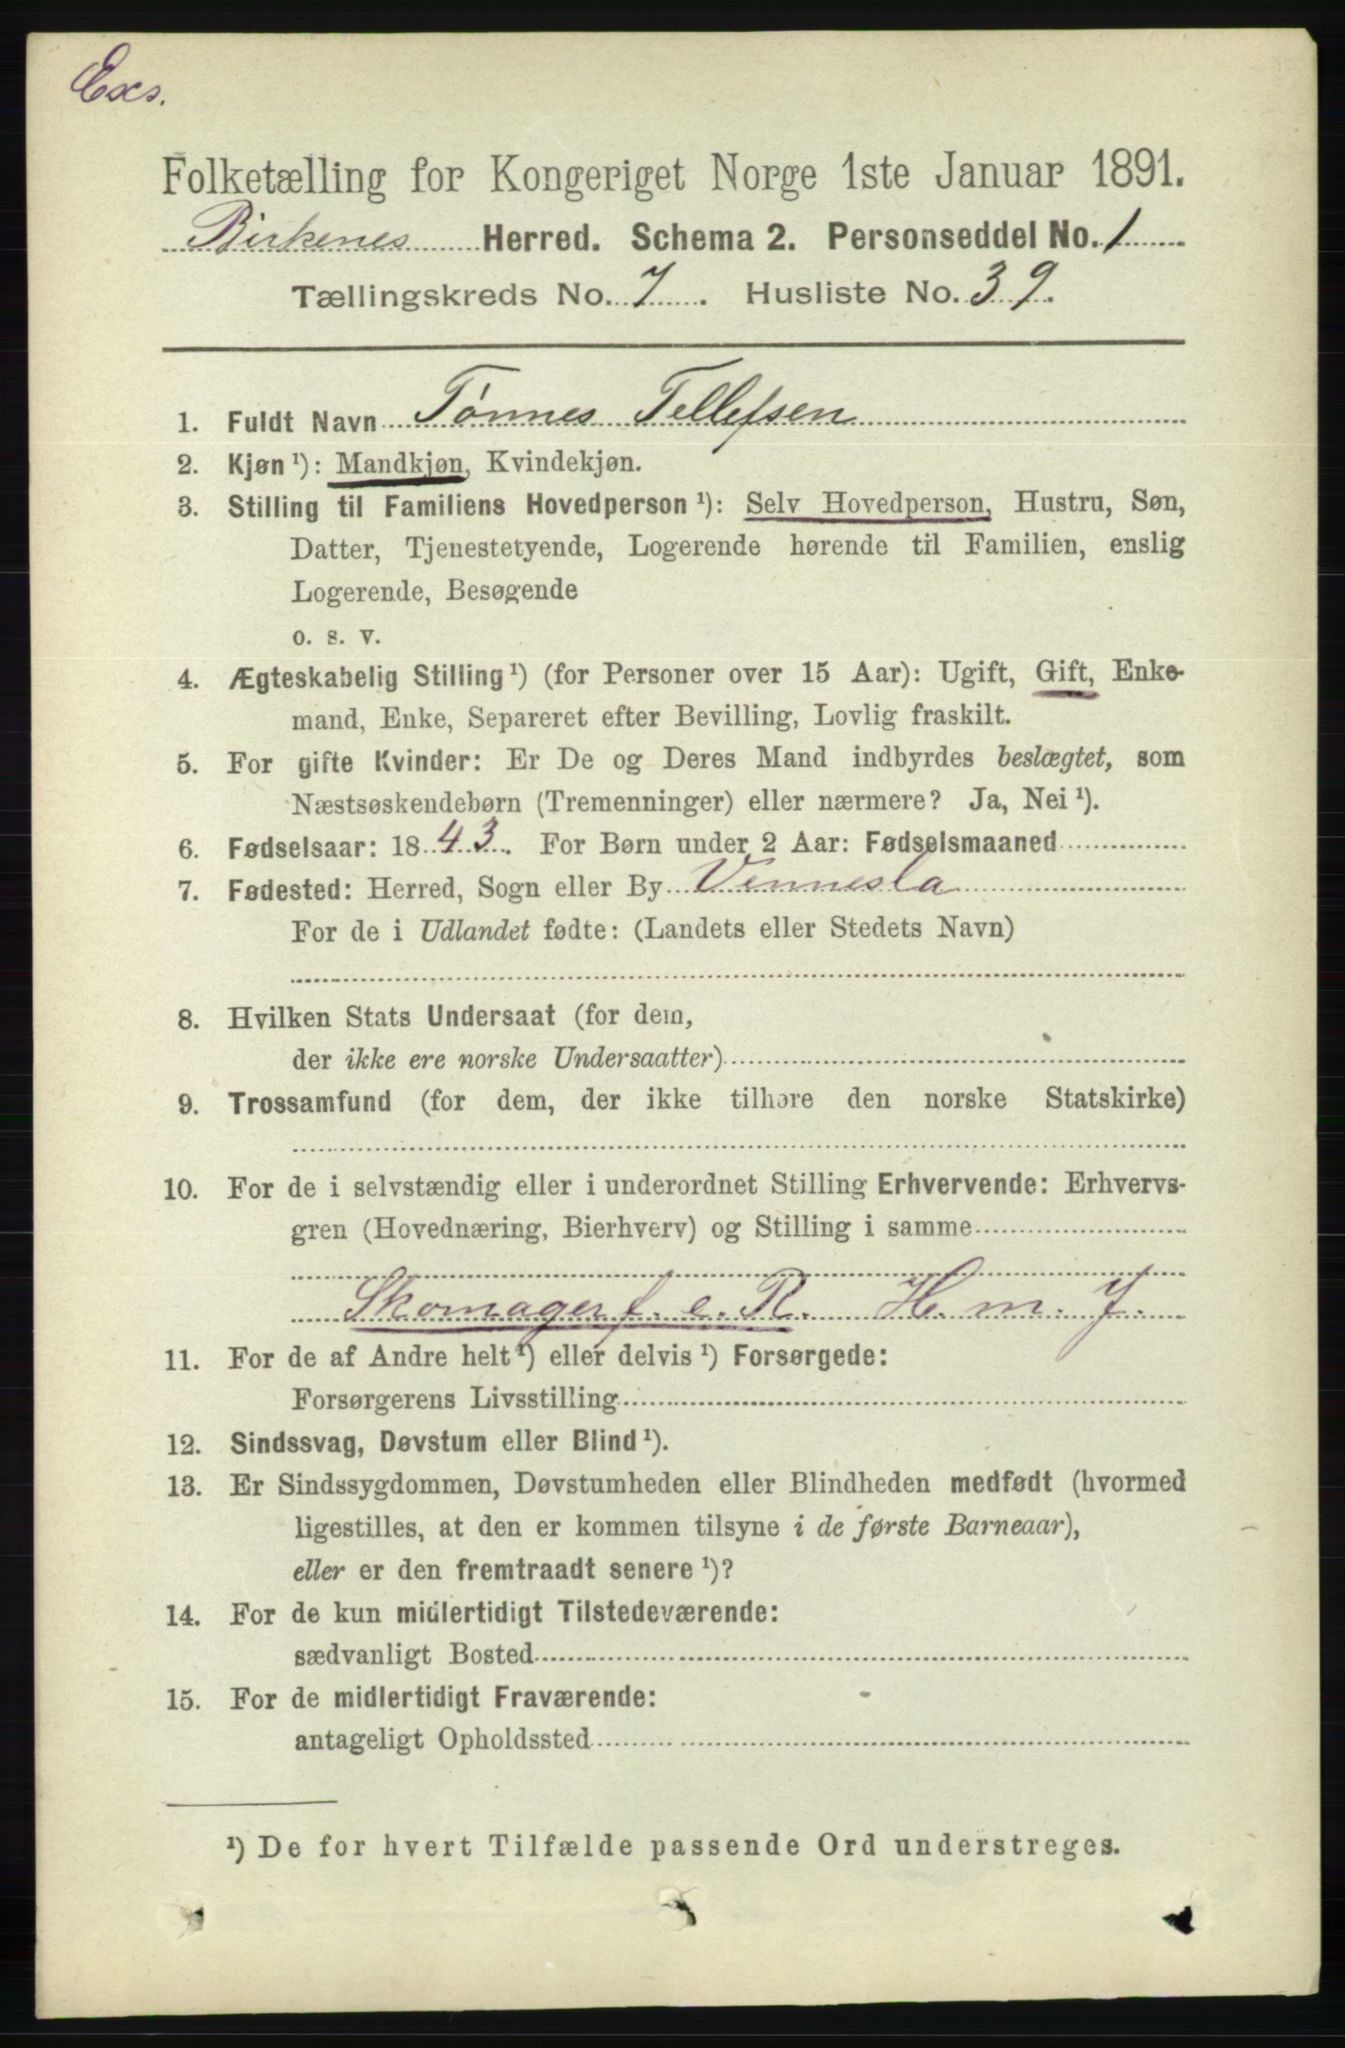 Exs.
Folketælling for Kongeriget Norge 1ste Januar 1891.
Birkenes Herred. Schema 2. Personseddel No. 1
Tællingskreds No. 7. Husliste No. 39.
1. Fuldt Navn Tønnes Tellefsen
2. Kjøn ¹): Mandkjøn, Kvindekjøn.
3. Stilling til Familiens Hovedperson ¹): Selv Hovedperson, Hustru, Søn,
Datter, Tjenestetyende, Logerende hørende til Familien, enslig
Logerende, Besøgende
o. s. v.
4. Ægteskabelig Stilling ¹) (for Personer over 15 Aar): Ugift, Gift, Enke-
mand, Enke, Separeret efter Bevilling, Lovlig fraskilt.
5. For gifte Kvinder: Er De og Deres Mand indbyrdes beslægtet, som
Næstsøskendebørn (Tremenninger) eller nærmere? Ja, Nei ¹).
6. Fødselsaar: 1843. For Børn under 2 Aar: Fødselsmaaned
7. Fødested: Herred, Sogn eller By Vennesla
For de i Udlandet fødte: (Landets eller Stedets Navn)
8. Hvilken Stats Undersaat (for dem,
der ikke ere norske Undersaatter)
9. Trossamfund (for dem, der ikke tilhøre den norske Statskirke)
10. For de i selvstændig eller i underordnet Stilling Erhvervende: Erhvervs-
gren (Hovednæring, Bierhverv) og Stilling i samme
Skomager f. e. R. H. m. J.
11. For de af Andre helt ¹) eller delvis ¹) Forsørgede:
Forsørgerens Livsstilling
12. Sindssvag, Døvstum eller Blind ¹).
13. Er Sindssygdommen, Døvstumheden eller Blindheden medfødt (hvormed
ligestilles, at den er kommen tilsyne i de første Barneaar),
eller er den fremtraadt senere ¹)?
14. For de kun midlertidigt Tilstedeværende:
sædvanligt Bosted
15. For de midlertidigt Fraværende:
antageligt Opholdssted
¹) De for hvert Tilfælde passende Ord understreges.